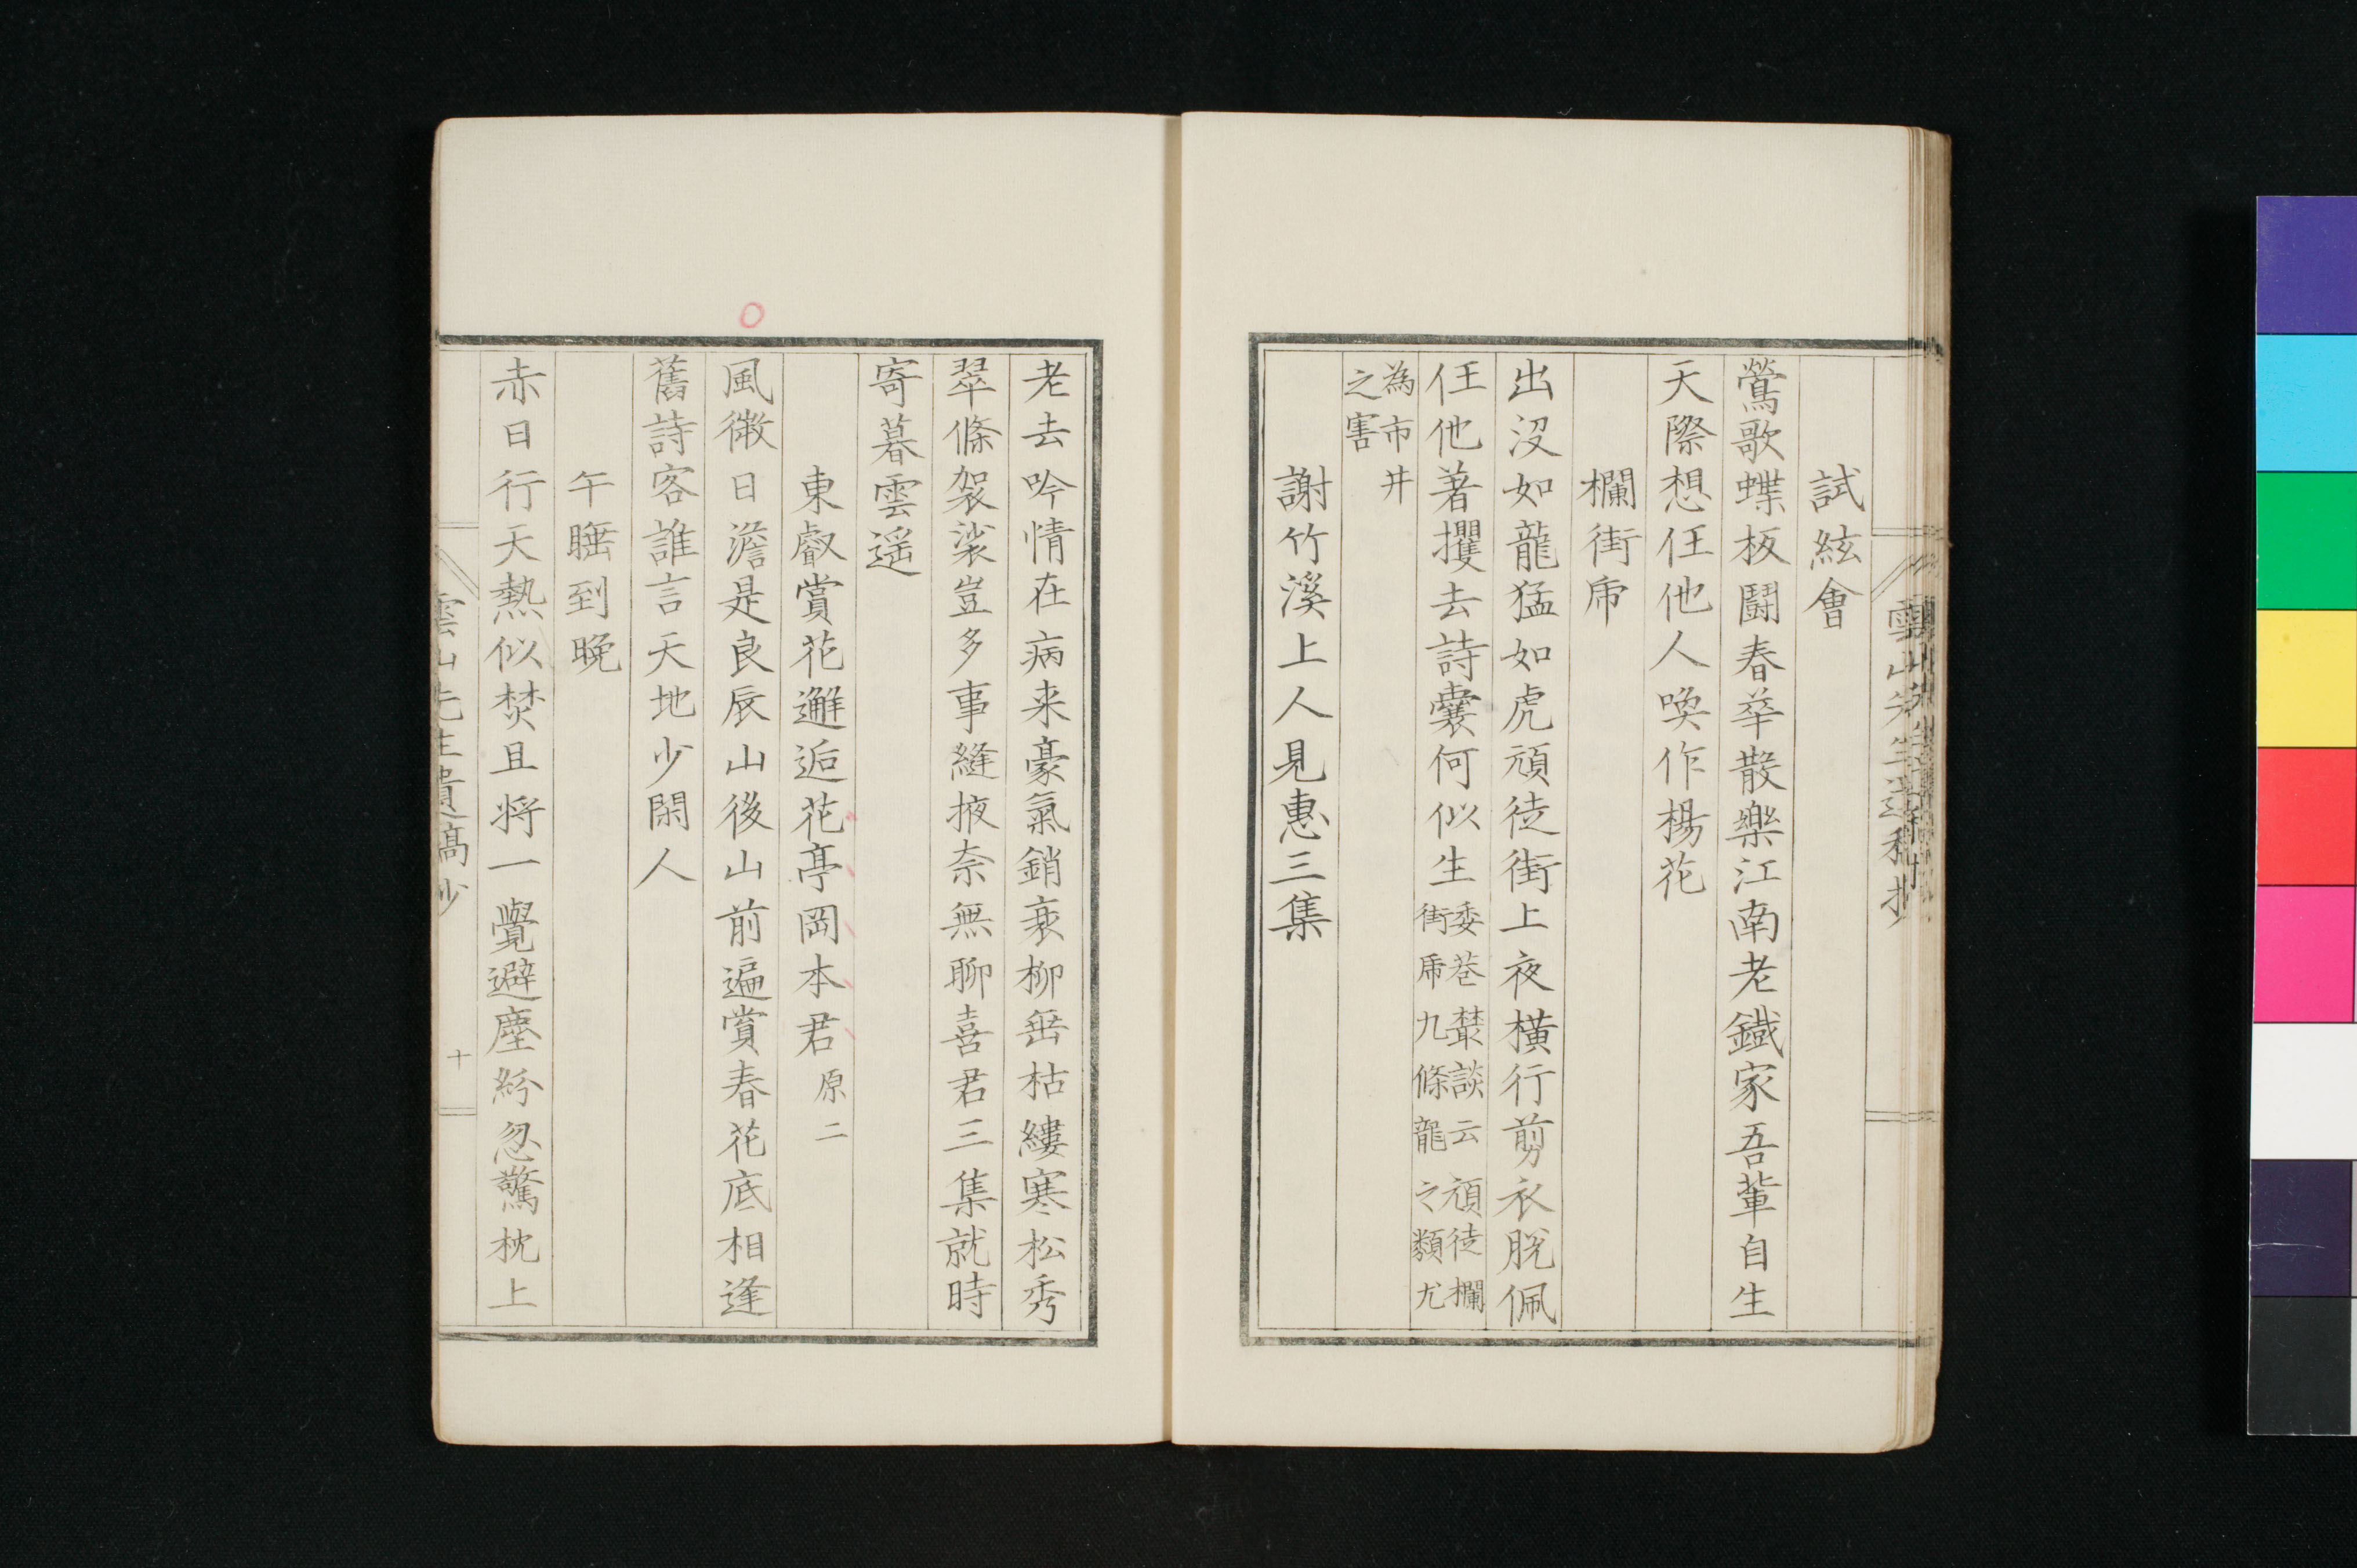 試絃會
鶯歌蝶板鬪春華散樂江南老鐵家吾輩自生
天際想任他人喚作楊花
欄街乕
出没如龍猛如虎頑徒街上夜横行剪衣脱佩
任他著攫去詩囊何似生
委巷叢談云頑徒欄
街乕九條龍之類尤
為市井
之害
謝竹溪上人見惠三集
老去吟情在病来豪氣銷衰柳垂枯縷寒松秀
翠條袈裟豈多事縫掖奈無聊喜君三集就時
寄暮雲遥
東叡賞花邂逅花亭岡本君
原二
風微日澹是良辰山後山前遍賞春花底相逢
舊詩客誰言天地少閑人
午睡到晩
赤日行天熱似焚且将一覺避塵紛忽驚枕上
雲山先生遺稿抄
十